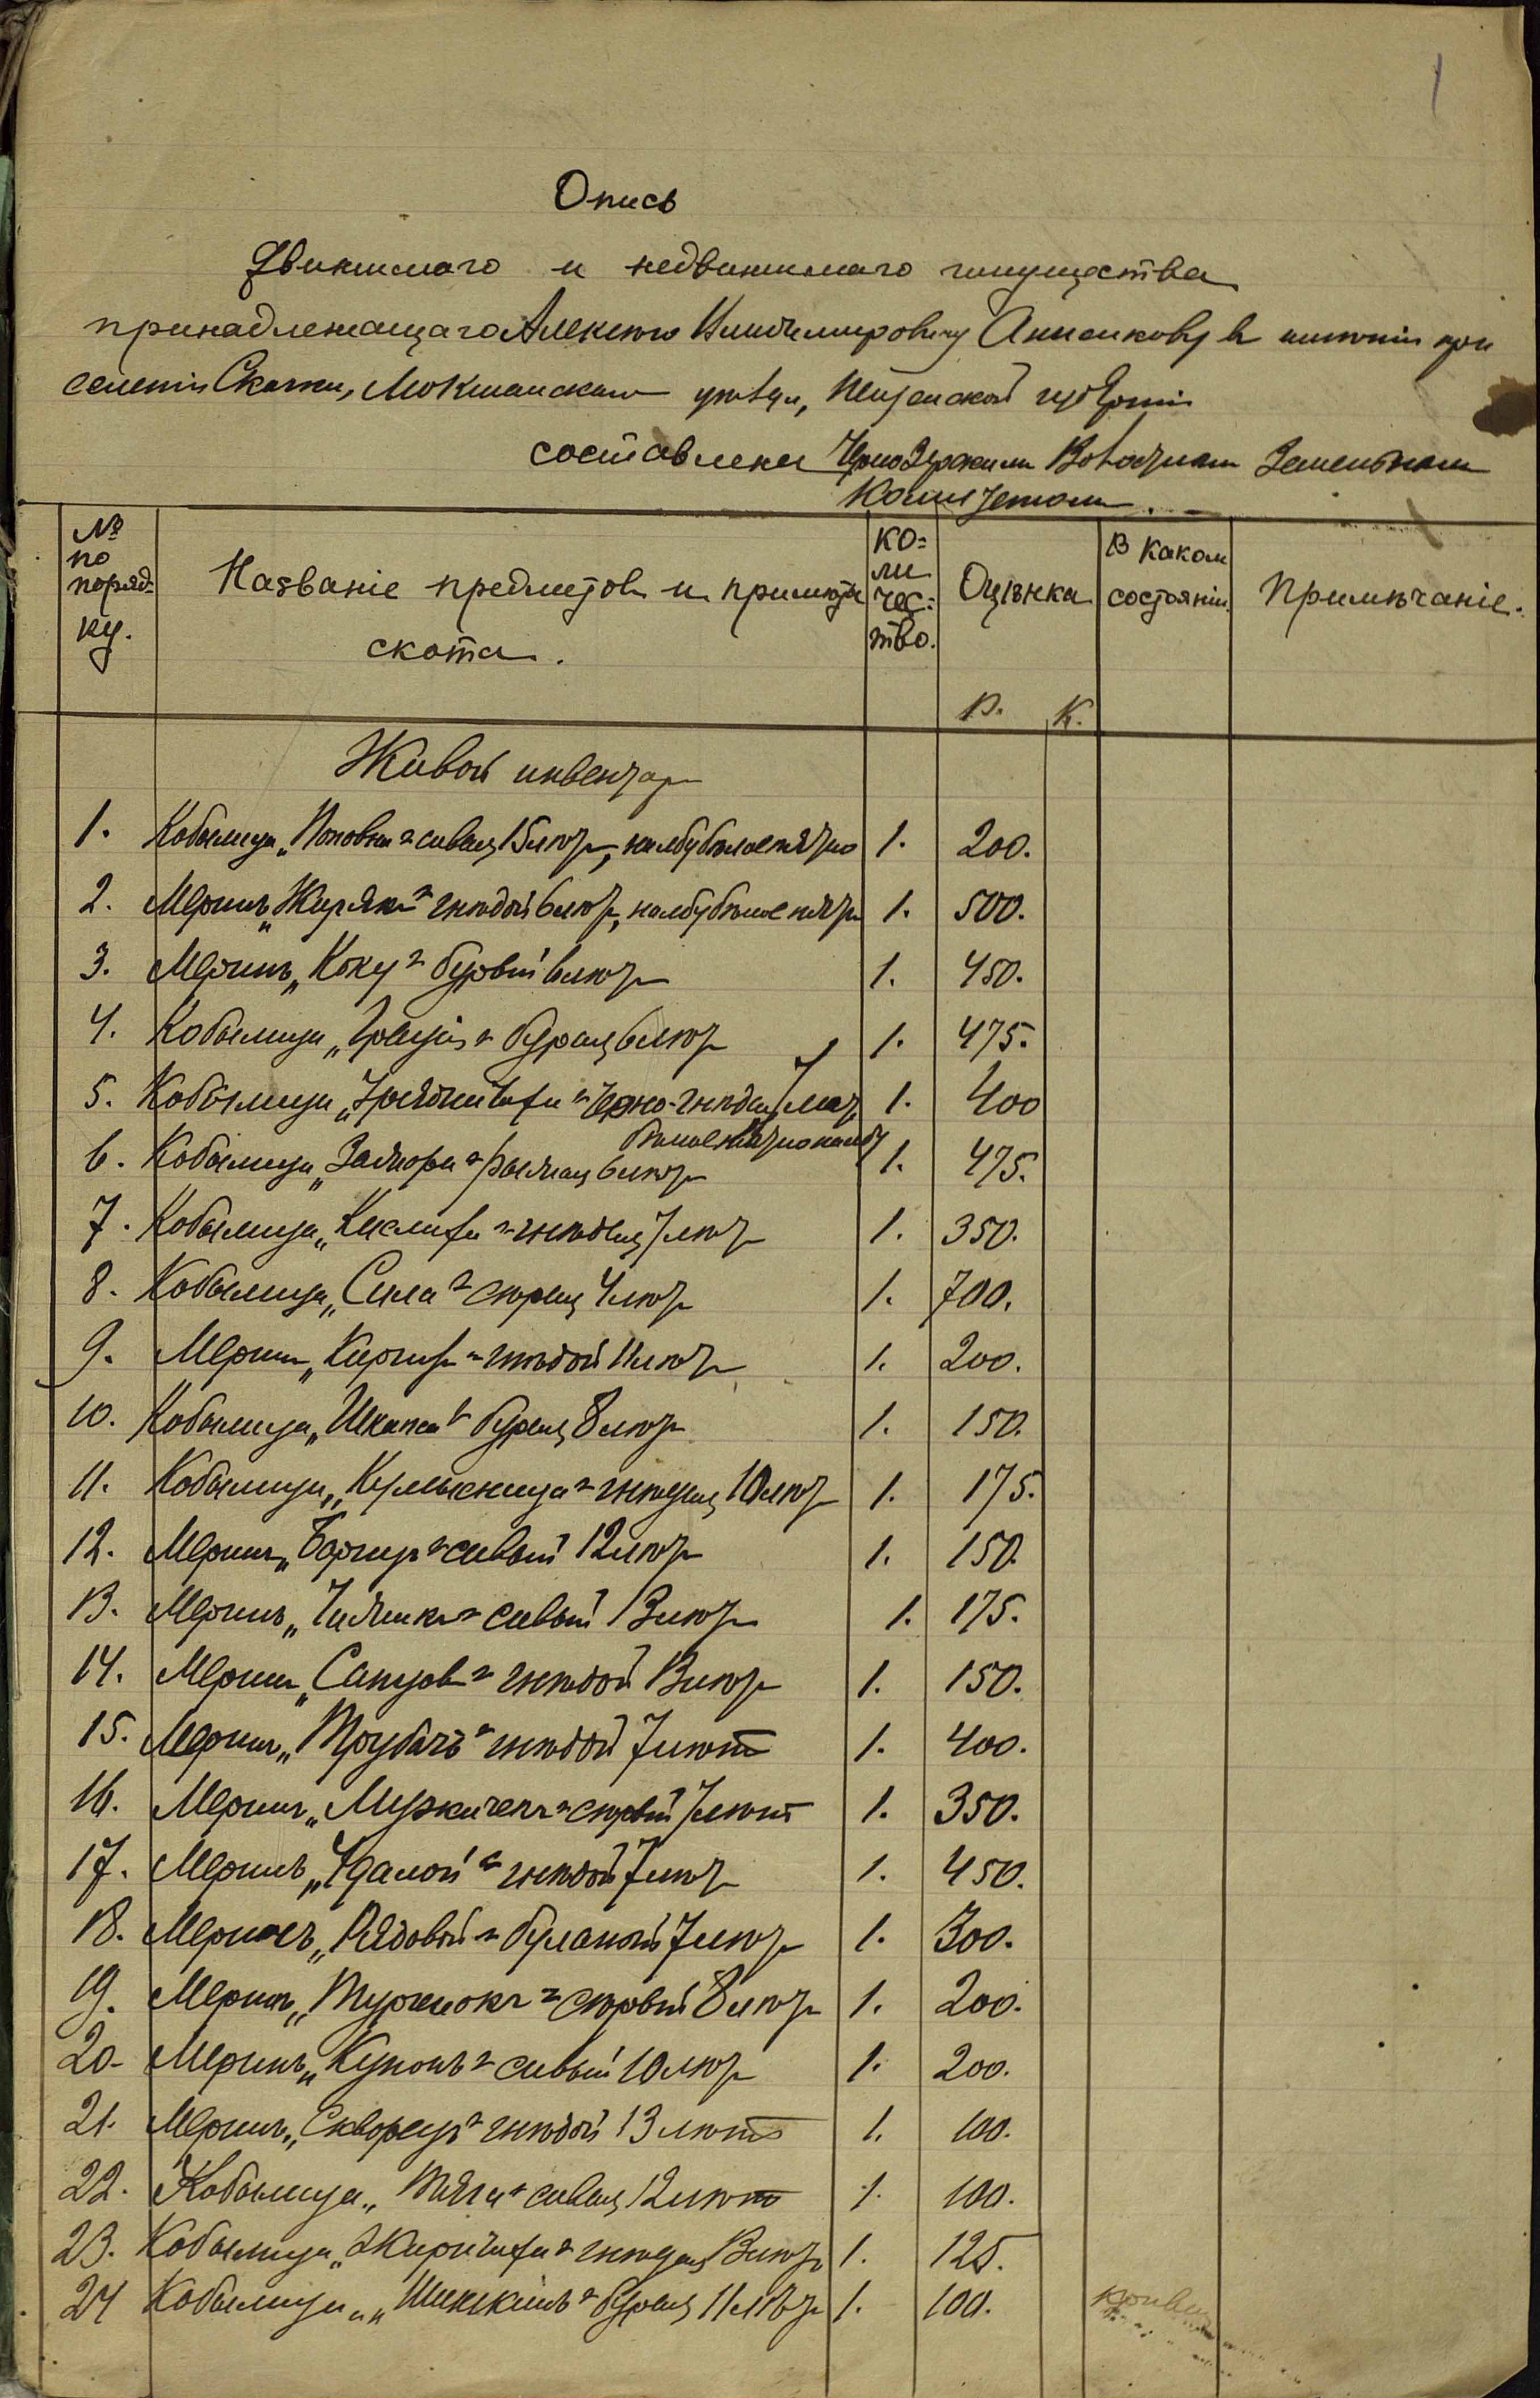 1
Опись
движимаго и недвижимаго имущества
принадлежащаго Алексею Владимировичу Анненкову в имении при
селении Скачки, Мокшанскаго уезда, Пензенской губернии
составлена Чернозерским Волостным Земельным
Комитетом.
№ по поряд-ку.
Названіе предметов и примета скота.
Ко=ли чес=тво.
Оценка
Р. К.
В каком состояніи.
Примечаніе.
Живой инвентарь
1. Кобылица „Поповка“ сивая 15 лет, на лбу белое пятно 1. 200.
2. Меринъ „Жиряк“ гнедой 6 лет, на лбу белое пятно 1. 500.
3. Меринъ „Коку“ бурый 6 лет 1. 450.
4. Кобылица „Грация“ бурая 6 лет 1. 475.
5. Кобылица черно-гнедая 7 лет, 1. 400
белое пятно на лбу
6. Кобылица 6 лет 1. 475.
7. Кобылица гнедая 7 лет 1. 350.
8. Кобылица „Сила“ серая 4 лет 1. 700.
9. Мерин „Киргиз“ гнедой 11 лет 1. 200.
10. Кобылица „Шкапа“ бурая 8 лет 1. 150.
11. Кобылица гнедая 10 лет 1. 175.
12. Мерин сивый 12 лет 1. 150.
13. Меринъ сивый 13 лет 1. 175.
14. Мерин гнедой 13 лет 1. 150.
15. Мерин „Трубачъ“ гнедой 7 лет 1. 400.
16. Мерин „Музычен“ серый 7 лет 1. 350.
17. Меринъ „Удалой“ гнедой 7 лет 1. 450.
18. Меринъ „Рядовой“ буланый 7 лет 1. 300.
19. Мерин серый 8 лет 1. 200.
20. Меринъ „Купонъ“ сивый 10 лет 1. 200.
21. Мерин „Скворец“ гнедой 13 лет 1. 100.
22. Кобылица „Тяга“ сивая 12 лет 1. 100.
23. Кобылица гнедая 13 лет 1. 125.
24 Кобылица бурая 11 лет 1. 100. кривая